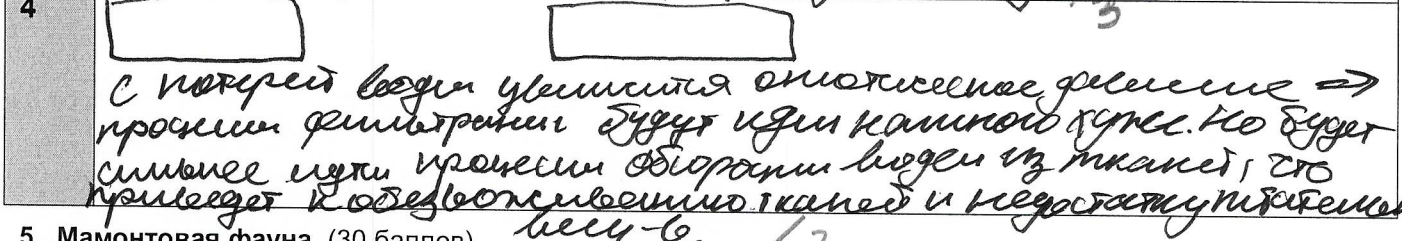 4
3
С потерей воды увеличится онкотическое давление ⇒
процессы фильтрации будут идти намного хуже. Но будет
сильнее идти процессы абсорбции воды из тканей, что
приведет к обезвоживанию тканей и недостатку питательн
вещ-в.
5. Мамонтовая фауна. (30 баллов)